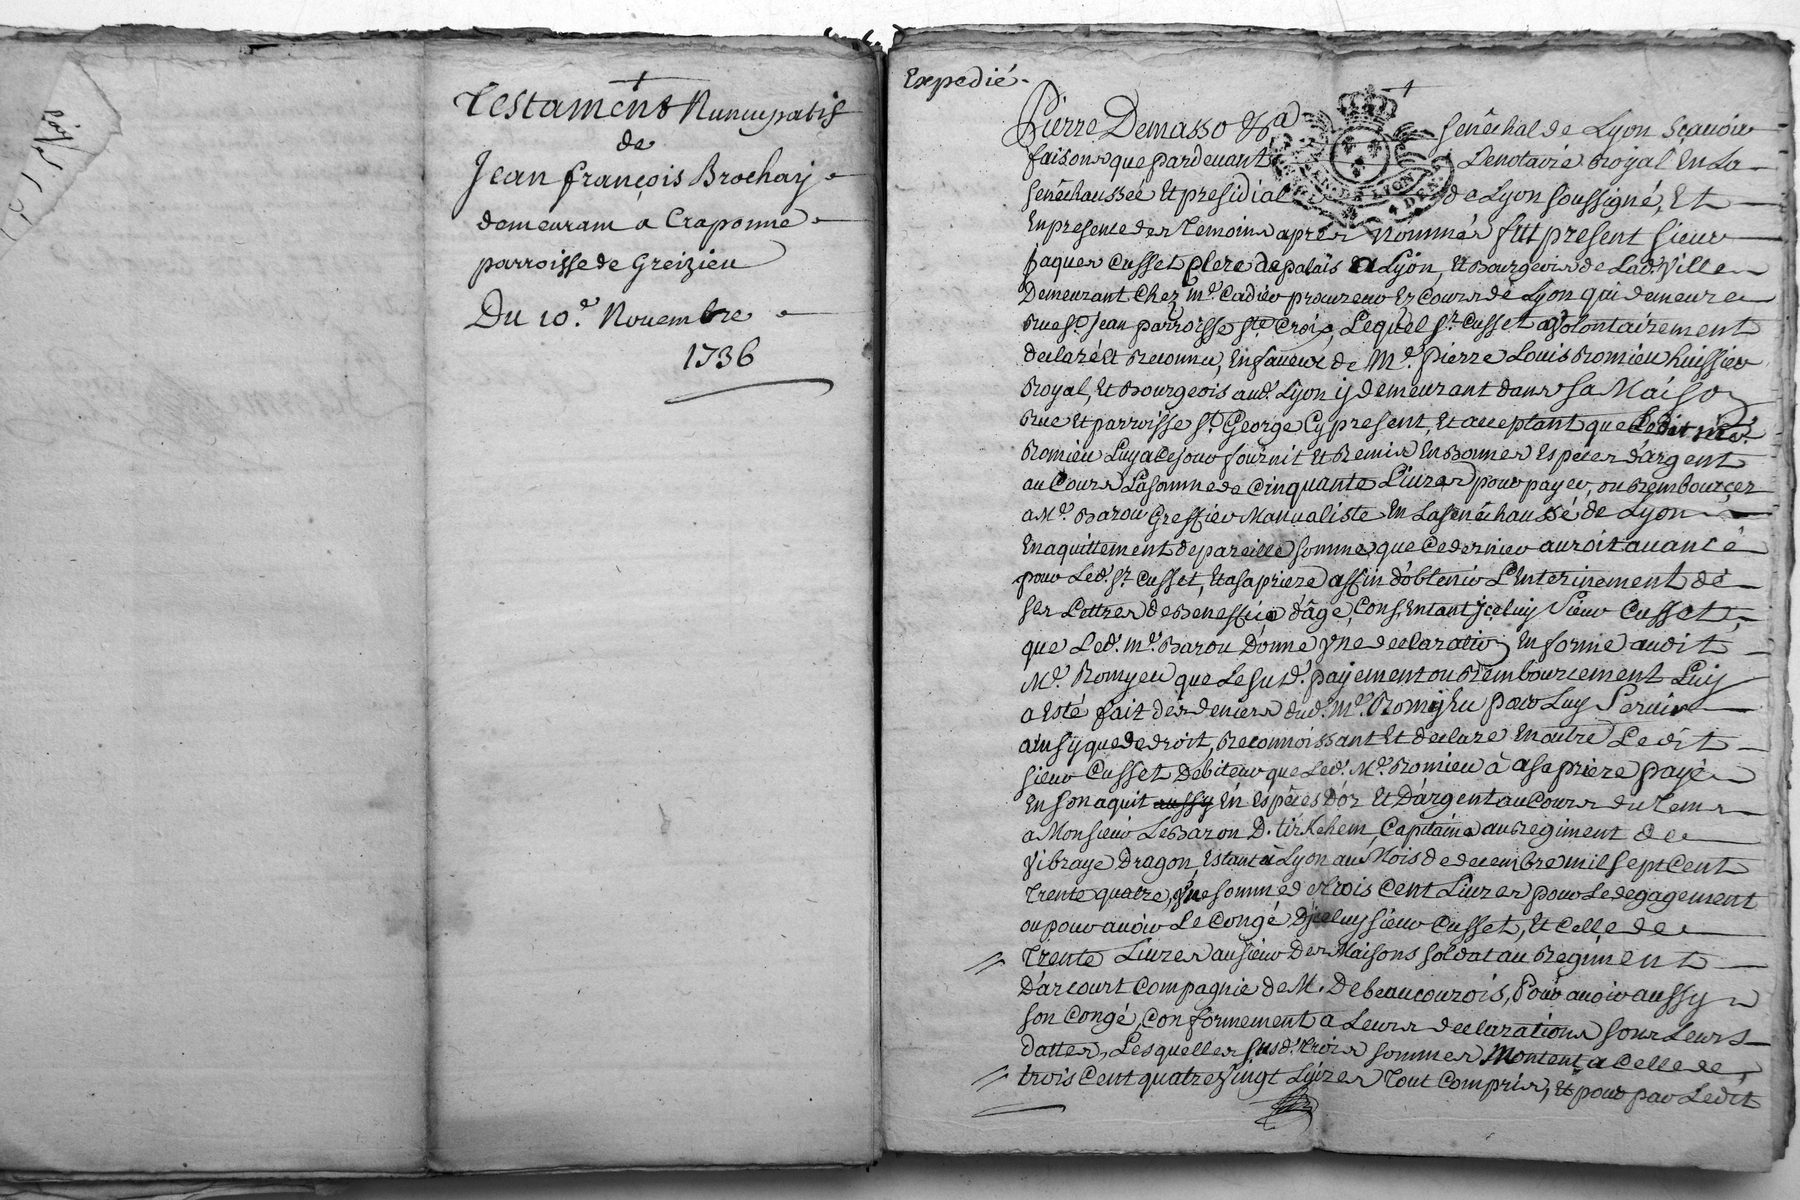 Testament Nuncupatif
de
Jean françois Brochay
demeurant a Craponne
parroisse de Greizieu
Du 10.e Novembre
1736
Expedié.
Pierre Demasso &a Senéchal de Lyon Sçavoir
faisons que pardevant Le notaire Royal En La
Senéchaussée Et presidial de Lyon soussigné, Et
En presence des Temoins après Nommés fut present sieur
Jaques Cusset Clerc de palais a Lyon, Et Bourgeois de Lad. Ville
Demeurant Chez m.e Cadier procureur Es Cours de Lyon qui demeure
Rue St. Jean parroisse Ste. Croix, Lequel Sr. Cusset a Volontairement
declaré Et Reconnu, En faveur de M.e pierre Louis Romieu huissier
Royal, Et Bourgeois aud. Lyon y demeurant dans sa Maison
Rue Et parroisse St. George Cy present, Et acceptant que Ledit
Romieu Luy a Cejour fournit Et Remis En Bonnes Especes d'argent
au Cours La somme de Cinquante Livres pour payer, ou Rembourcer
a M.e Barou Greffier Manualiste En La senéchaussé de Lyon
En aquittement de pareille somme que Ce dernier auroit avancé
pour Led. Sr. Cusset, Et a sa priere affin d'obtenir L'Enterinement de
ses Lettres de Beneffice d'âge, Consentant yceluy Sieur Cusset,
que Led. m.e Barou Donne Une declaration En forme audit
M.e Romyeu que Le susd. payement ou Rembourcement Luy
a Esté fait des deniers dud. m.e Romyeu pour Luy Servir
ainsy que de droit, Reconnoissant Et declare En outre Ledit
sieur Cusset Debiteur que Led. M.e Romieu à a sa priere payé
En son aquit aussy En Espéces D'or Et D'argent au Cours du Tems
a Monsieur Le Baron D. tirkehem Capitaine au Regiment de
Vibraye Dragon, Estant à Lyon au Mois de decembre mil sept Cent
Trente quatre, Une somme de trois Cent Livres pour Le degagement
ou pour avoir Le Congé d'yceluy sieur Cusset, Et Celle de
Trente Livres au sieur Des Maisons soldat au Regiment
D'arcourt Compagnie de M. De beaucourois, Pour avoir aussy
son Congé, Conformement a Leurs declarations sous Leurs
dattes, Lesquelles susd. trois sommes Montent a Celle de
trois Cent quatre Vingt Livres Tout Compris, Et pour par Ledit